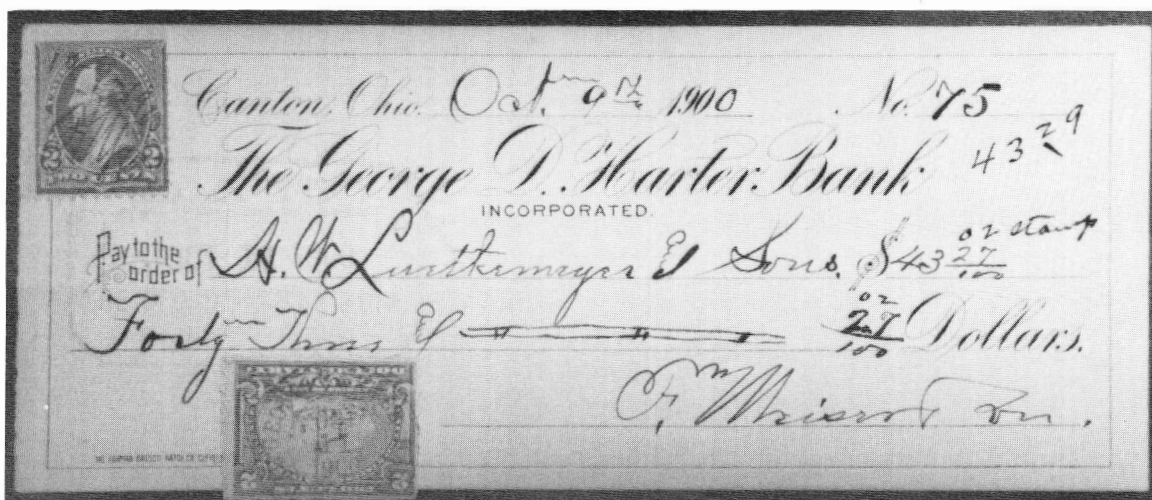 Canton, Ohio. Oct 9th 1900 No. 75
The George D. Harter Bank 43 29
INCORPORATED.
02 stamp
Pay to the order of H. W. Luetkemeyer & Sons. $43 27/100
02
Forty Three & 27/100 Dollars.
F.
2 2
2 2